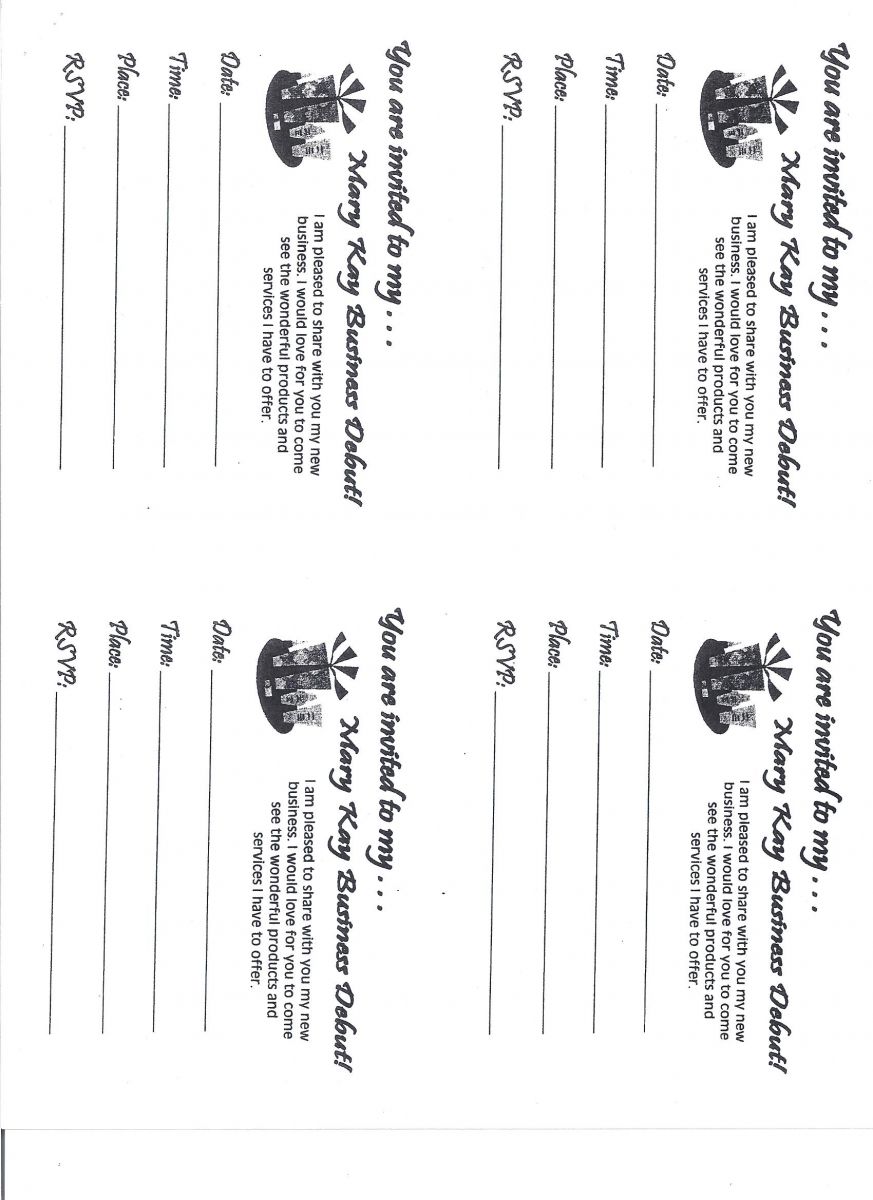 You are invited to my . . .
Mary Kay Business Debut!
I am pleased to share with you my new
business. I would love for you to come
see the wonderful products and
services I have to offer.
Date:
Time:
Place:
RSVP:
You are invited to my . . .
Mary Kay Business Debut!
I am pleased to share with you my new
business. I would love for you to come
see the wonderful products and
services I have to offer.
Date:
Time:
Place:
RSVP:
You are invited to my . . .
Mary Kay Business Debut!
I am pleased to share with you my new
business. I would love for you to come
see the wonderful products and
services I have to offer.
Date:
Time:
Place:
RSVP:
You are invited to my . . .
Mary Kay Business Debut!
I am pleased to share with you my new
business. I would love for you to come
see the wonderful products and
services I have to offer.
Date:
Time:
Place:
RSVP: